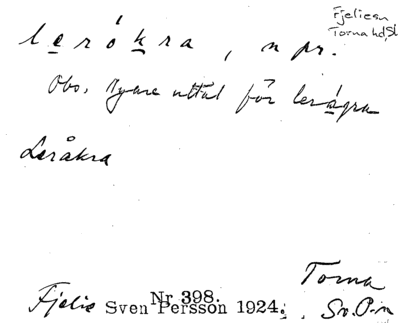 Fjeliesn
Torna hd, Sk
lerókra, n pr.
Obs. Nyare uttal för lerágra
Leråkra
Torna
Fjelie Nr 398.
Sven Persson 1924. Sv. P-n